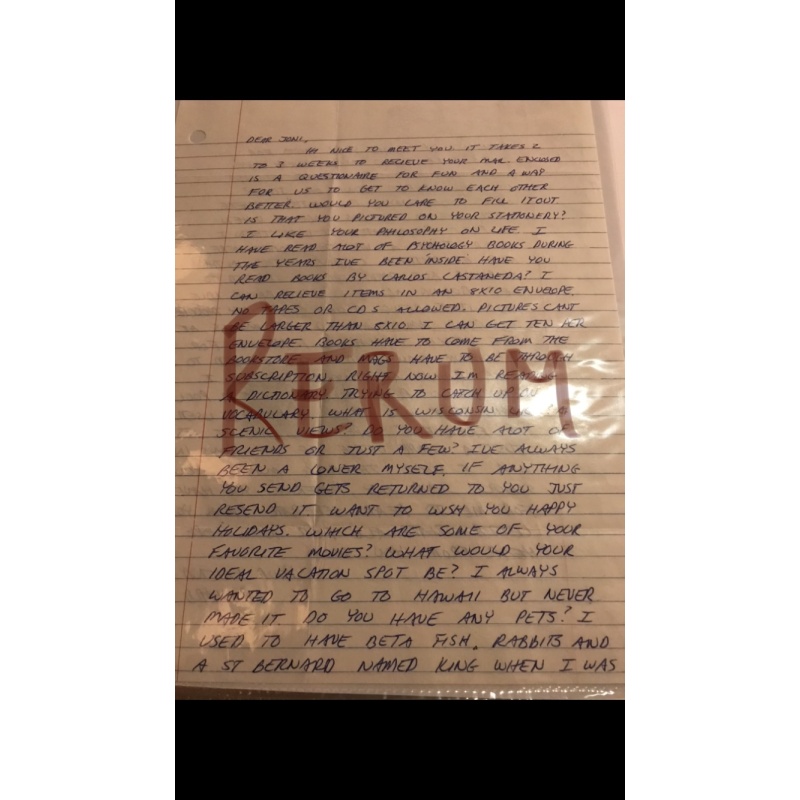 DEAR JONI,
HI NICE TO MEET YOU. IT TAKES 2
TO 3 WEEKS TO RECIEVE YOUR MAIL ENCLOSED
IS A QUESTIONAIRE FOR FUN AND A WAY
FOR US TO GET TO KNOW EACH OTHER
BETTER. WOULD YOU CARE TO FILL IT OUT.
IS THAT YOU PICTURED ON YOUR STATIONERY?
I LIKE YOUR PHILOSOPHY ON LIFE I
HAVE READ ALOT OF PSYCHOLOGY BOOKS DURING
THE YEARS IVE BEEN INSIDE HAVE YOU
READ BOOKS BY CARLOS CASTANEDA? I
CAN RECIEVE ITEMS IN AN 8X10 ENVELOPE
NO TAPES OR CD S ALLOWED. PICTURES CANT
BE LARGER THAN 8X10 I CAN GET TEN PER
ENVELOPE. BOOKS HAVE TO COME FROM THE
BOOKSTORE AND MAGS HAVE TO BE THROUGH
SUBSCRIPTION. RIGHT NOW I'M
A DICTIONARY TRYING TO CATCH UP
VOCABULARY. WHAT IS WISCONSIN
SCENIC VIEWS? DO YOU HAVE ALOT OF
FRIENDS OR JUST A FEW? IVE ALWAYS
BEEN A LONER MYSELF. IF ANYTHING
YOU SEND GETS RETURNED TO YOU JUST
RESEND IT WANT TO WISH YOU HAPPY
HOLIDAYS. WHICH ARE SOME OF YOUR
FAVORITE MOVIES? WHAT WOULD YOUR
IDEAL VACATION SPOT BE? I ALWAYS
WANTED TO GO TO HAWAII BUT NEVER
MADE IT DO YOU HAVE ANY PETS? I
USED TO HAVE BETA FISH, RABBITS AND
A ST BERNARD NAMED KING WHEN I WAS
RERUM